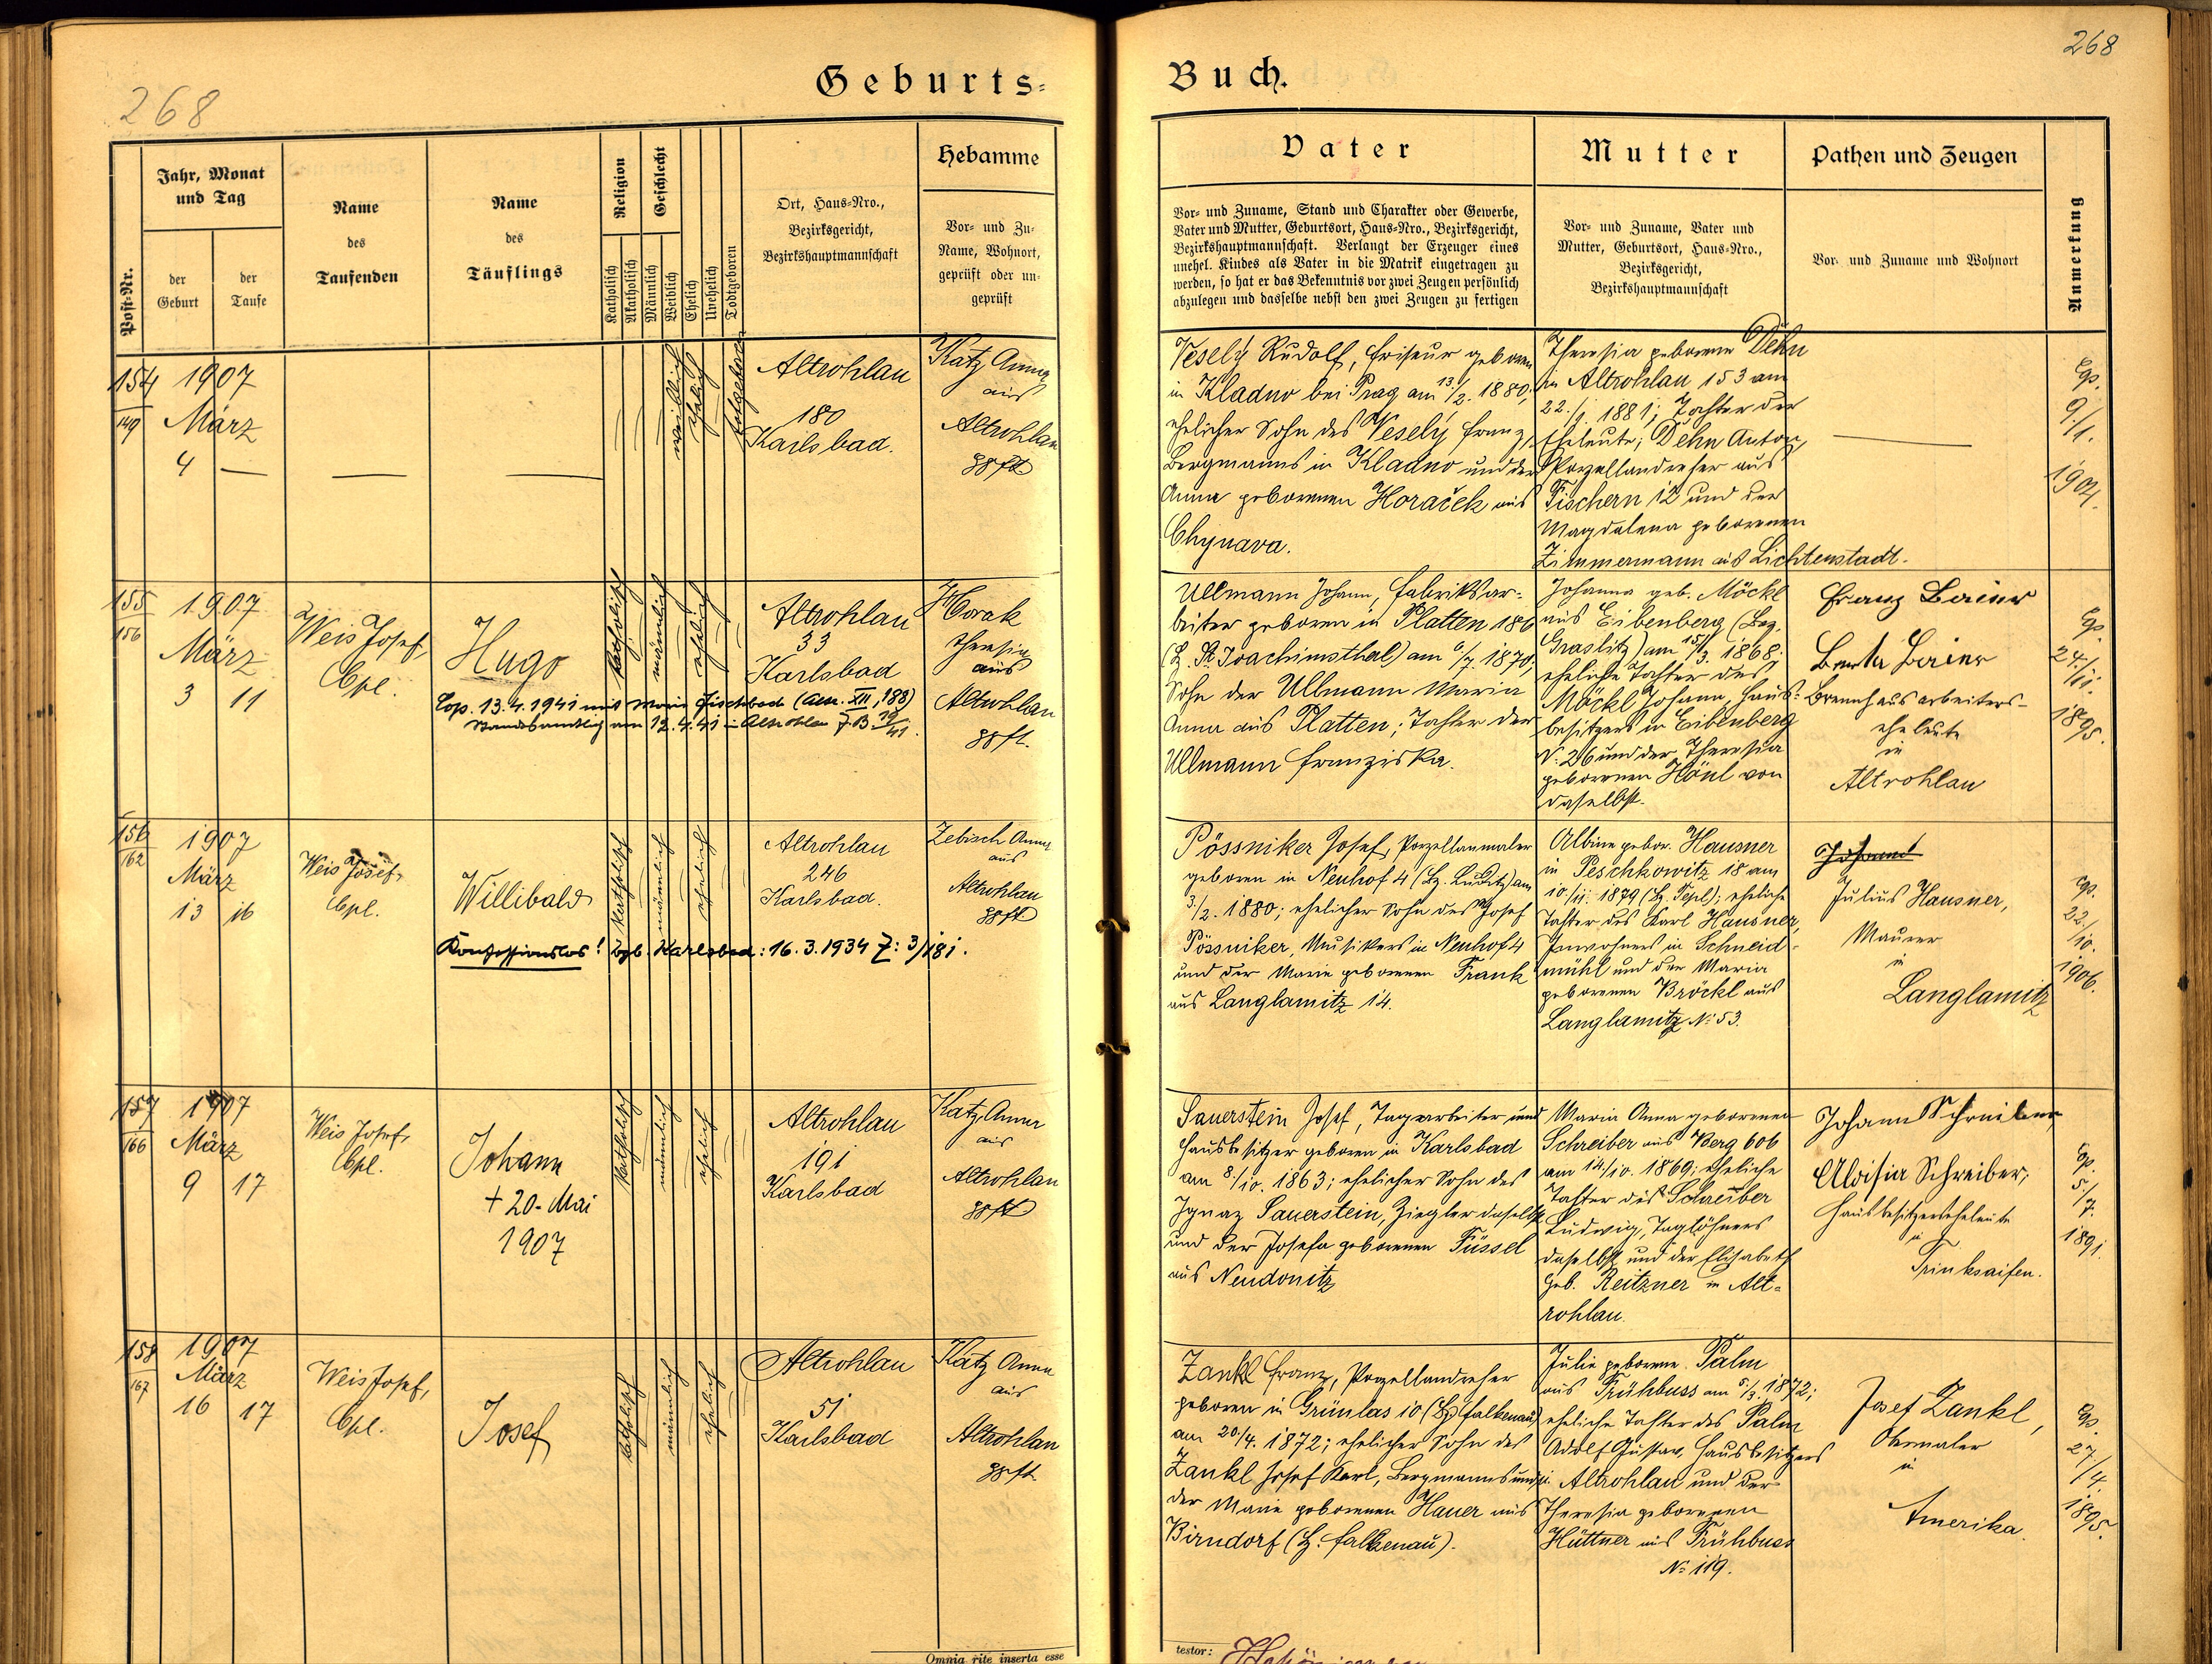 268
268
Geburts-
Buch.
Post-Nr.
Jahr, Monat
und Tag
der
Geburt
der
Taufe
Name
des
Taufenden
Name
des
Täuflings
Religion
Katholisch
Akatholisch
Geschlecht
Männlich
Weiblich
Ehelich
Unehelich
Todtgeboren
Ort, Haus-Nro.,
Bezirksgericht,
Bezirkshauptmannschaft
Hebamme
Vor- und Zu-
Name, Wohnort,
geprüft oder un-
geprüft
Vater
Vor- und Zuname, Stand und Charakter oder Gewerbe,
Vater und Mutter, Geburtsort, Haus-Nro., Bezirksgericht,
Bezirkshauptmannschaft. Verlangt der Erzeuger eines
unehel. Kindes als Vater in die Matrik eingetragen zu
werden, so hat er das Bekenntnis vor zwei Zeugen persönlich
abzulegen und dasselbe nebst den zwei Zeugen zu fertigen
Mutter
Vor- und Zuname, Vater und
Mutter, Geburtsort, Haus-Nro.,
Bezirksgericht,
Bezirkshauptmannschaft
Pathen und Zeugen
Vor- und Zuname und Wohnort
Anmerkung
154
149
1907
März
4 —
—
—
weiblich
ehelich
totgeboren
Altrohlau
180
Karlsbad.
Katz Anna
aus
Altrohlau
gpft
Vesely Rudolf, Friseur geboren
in Kladno bei Prag am 13./2. 1880;
ehelicher Sohn des Vesely Franz,
Bergmanns in Kladno und der
Anna geborenen Horaček aus
Chynava.
Theresia geborene Dehn
in Altrohlau 153 am
22./1. 1881; Tochter der
Eheleute; Dehn Anton,
Porzellandreher aus
Fischern 12 und der
Magdalena geborenen
Zimmermann aus Lichtenstadt.
—
Cop.
9./1.
1904.
155
156
1907
März
3 11
Weis Josef,
Cpl.
Hugo
Cop. 13.4.1941 mit Maria Fischbach (Altr. XII, 188)
Standesamtlich am 12.4.41 in Altrohlau F.B. 19/41.
katholisch
männlich
ehelich
Altrohlau
33
Karlsbad
Horak
Theresia
aus
Altrohlau
gpft.
Ullmann Johann, Fabriksar-
beiter geboren in Platten 186
(Bz. St. Joachimsthal) am 6/7. 1870;
Sohn der Ullmann Maria
Anna aus Platten; Tochter der
Ullmann Franziska.
Johanna geb. Möckl
aus Eibenberg (Bez.
Graslitz) am 15/3. 1868.
eheliche Tochter des
Möckl Johann, Haus-
besitzers in Eibenberg
N: 26 und der Theresia
geborenen Hönl von
daselbst.
Franz
Berta
Brennhausarbeiters-
eheleute
in
Altrohlau
Cop.
24./11.
1895.
156
162
1907
März
13 16
Weis Josef,
Cpl.
Willibald
Konfessionslos! bzb. Karlsbad: 16.3.1934 Z: 3/181.
katholisch
männlich
ehelich
Altrohlau
246
Karlsbad.
Zebisch Anna
aus
Altrohlau
gpft
Pössniker Josef, Porzellanmaler
geboren in Neuhof 4 (Bz. Luditz) am
3/2. 1880; ehelicher Sohn des Josef
Pössniker, Musikers in Neuhof 4
und der Marie geborenen Frank
aus Langlamitz 14.
Albine gebor. Hausner
in Peschkowitz 18 am
10./11. 1879 (Bz. Tepl); eheliche
Tochter des Karl Hausner,
Inwohners in Schneid-
mühl und der Maria
geborenen Bröckl aus
Langlamitz N: 53.
Julius Hausner,
Maurer
in
Langlamitz
Cop.
22./10.
1906.
157
166
1907
März
9 17
Weis Josef,
Cpl.
Johann
+ 20. Mai
1907
katholisch
männlich
ehelich
Altrohlau
191
Karlsbad
Katz Anna
aus
Altrohlau
gpft
Sauerstein Josef, Tagarbeiter und
Hausbesitzer geboren in Karlsbad
am 8./10. 1863; ehelicher Sohn des
Ignaz Sauerstein, Ziegler daselbst
und der Josefa geborenen Füssel
aus Neudonitz
Maria Anna geborenen
Schreiber aus Berg 606
am 14./10. 1869; eheliche
Tochter des Schreiber
Ludwig, Taglöhners
daselbst und der Elisabeth
geb. Reitzner in Alt-
rohlau.
Johann Schreiber
Aloisia Schreiber,
Hausbesitzerseheleute
in
Trinksaifen.
Cop.
5./7.
1891.
158
167
1907
März
16 17
Weis Josef,
Cpl.
Josef
katholisch
männlich
ehelich
Altrohlau
51
Karlsbad
Katz Anna
aus
Altrohlau
gpft
Zankl Franz, Porzellandreher
geboren in Grünlas 10 (Bz. Falkenau)
am 20/4. 1872; ehelicher Sohn des
Zankl Josef Karl, Bergmanns und
der Marie geborenen Hauer aus
Birndorf (Bz. Falkenau).
Julie geborene Palm
aus Frühbuss am 5./3. 1872;
eheliche Tochter des Palm
Adolf Gustav, Hausbesitzers
in Altrohlau und der
Theresia geborenen
Hüttner aus Frühbuss
N: 119.
Josef Zankl,
Obermaler
in
Amerika.
Cop.
27./4.
1895.
Omnia rite inserta esse
testor: